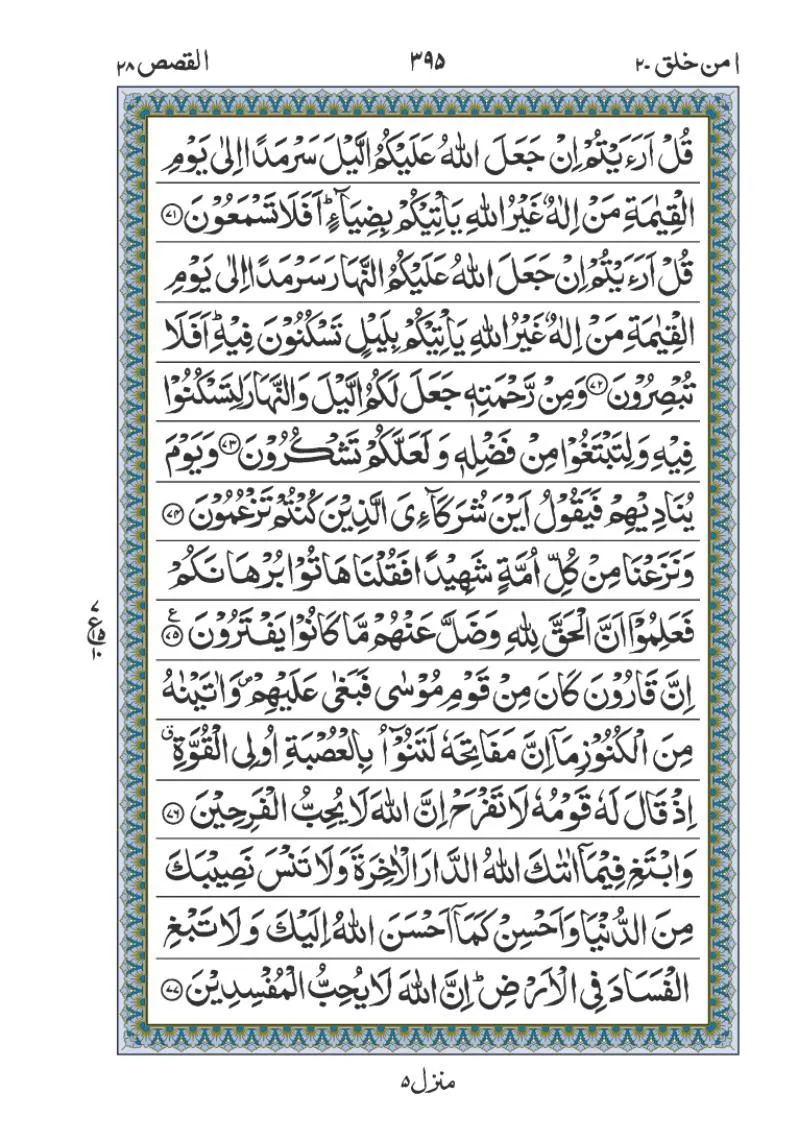 امن خلق ۲۰ ۳۹۵ القصص ۲۸
قُلْ اَرَءَيْتُمْ اِنْ جَعَلَ اللّٰهُ عَلَيْكُمُ الَّيْلَ سَرْمَدًا اِلٰى يَوْمِ
الْقِيٰمَةِ مَنْ اِلٰهٌ غَيْرُ اللّٰهِ يَاْتِيْكُمْ بِضِيَآءٍ ؕ اَفَلَا تَسْمَعُوْنَ ۝۷۱
قُلْ اَرَءَيْتُمْ اِنْ جَعَلَ اللّٰهُ عَلَيْكُمُ النَّهَارَ سَرْمَدًا اِلٰى يَوْمِ
الْقِيٰمَةِ مَنْ اِلٰهٌ غَيْرُ اللّٰهِ يَاْتِيْكُمْ بِلَيْلٍ تَسْكُنُوْنَ فِيْهِ ؕ اَفَلَا
تُبْصِرُوْنَ ۝۷۲ وَمِنْ رَّحْمَتِهٖ جَعَلَ لَكُمُ الَّيْلَ وَالنَّهَارَ لِتَسْكُنُوْا
فِيْهِ وَلِتَبْتَغُوْا مِنْ فَضْلِهٖ وَلَعَلَّكُمْ تَشْكُرُوْنَ ۝۷۳ وَيَوْمَ
يُنَادِيْهِمْ فَيَقُوْلُ اَيْنَ شُرَكَآءِىَ الَّذِيْنَ كُنْتُمْ تَزْعُمُوْنَ ۝۷۴
وَنَزَعْنَا مِنْ كُلِّ اُمَّةٍ شَهِيْدًا فَقُلْنَا هَاتُوْا بُرْهَانَكُمْ
فَعَلِمُوْٓا اَنَّ الْحَقَّ لِلّٰهِ وَضَلَّ عَنْهُمْ مَّا كَانُوْا يَفْتَرُوْنَ ۝۷۵ ع
۷ ع ۱۵ ۱۰
اِنَّ قَارُوْنَ كَانَ مِنْ قَوْمِ مُوْسٰى فَبَغٰى عَلَيْهِمْ ۪ وَاٰتَيْنٰهُ
مِنَ الْكُنُوْزِ مَاۤ اِنَّ مَفَاتِحَهٗ لَتَنُوْٓاُ بِالْعُصْبَةِ اُولِى الْقُوَّةِ ق
اِذْ قَالَ لَهٗ قَوْمُهٗ لَا تَفْرَحْ اِنَّ اللّٰهَ لَا يُحِبُّ الْفَرِحِيْنَ ۝۷۶
وَابْتَغِ فِيْمَاۤ اٰتٰىكَ اللّٰهُ الدَّارَ الْاٰخِرَةَ وَلَا تَنْسَ نَصِيْبَكَ
مِنَ الدُّنْيَا وَاَحْسِنْ كَمَاۤ اَحْسَنَ اللّٰهُ اِلَيْكَ وَلَا تَبْغِ
الْفَسَادَ فِى الْاَرْضِ ؕ اِنَّ اللّٰهَ لَا يُحِبُّ الْمُفْسِدِيْنَ ۝۷۷
منزل ۵